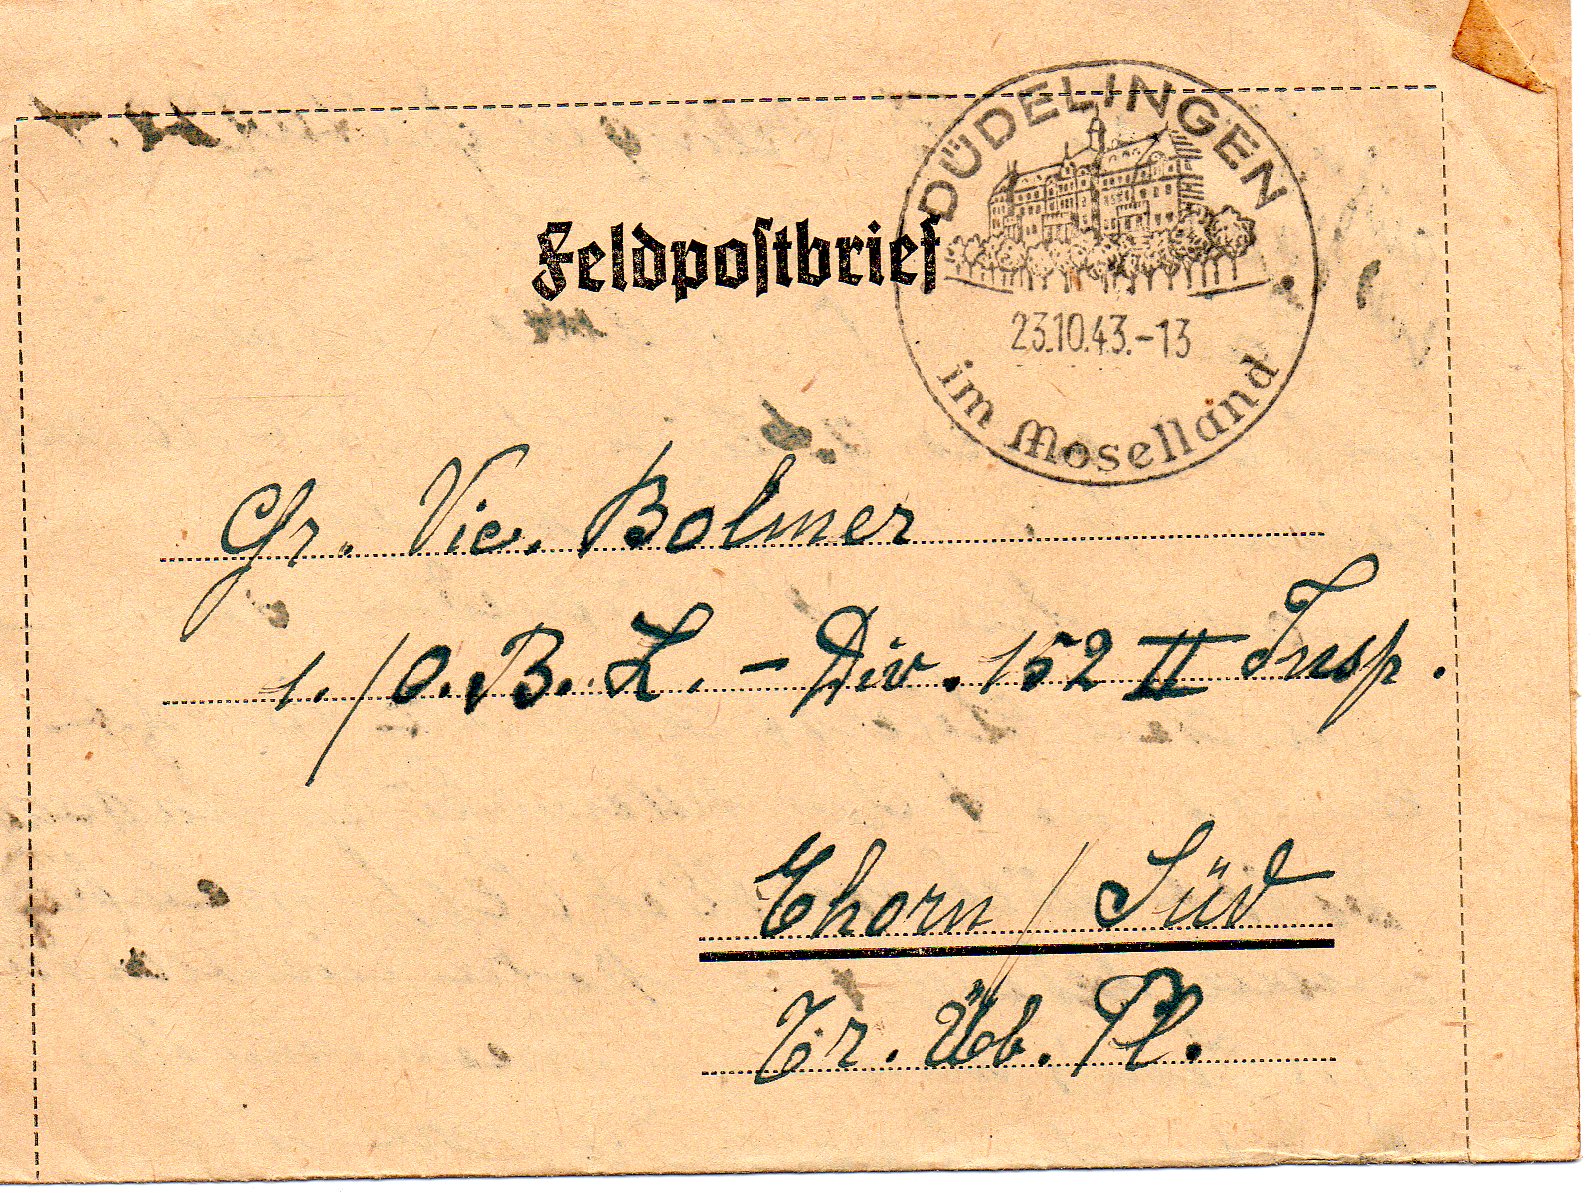 DÜDELINGEN
Feldpostbrief
23.10.43.-13
im Moselland
Gr. Vic. Bolmer
1./O.B.L. - Div. 152 II Insp.
Thorn / Süd
Tr. Üb. Pl.